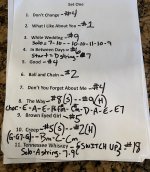 Set One
1. Don't Change - #4
2. What I Like About You - #1
3. White Wedding - #9
Solo: 7-10- - 10-10-11-10-9
4. In Between Days - #6
Start = D string - #7
5. Good - #4
6. Ball and Chain - #2
7. Don't You Forget About Me - #4
8. The Way - #8(S) - #9(H)
9. Brown Eyed Girl #5
10. Creep - #5(S) - #2(H)
11. Tennessee Whiskey - (SWITCH UP) #13
Solo - A string - 7.9